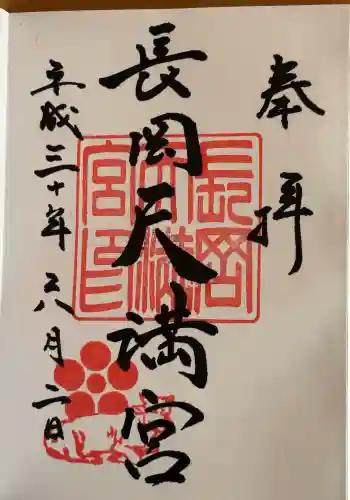 奉拝
長岡天満宮
長岡天満宮印
平成三十年六月二日